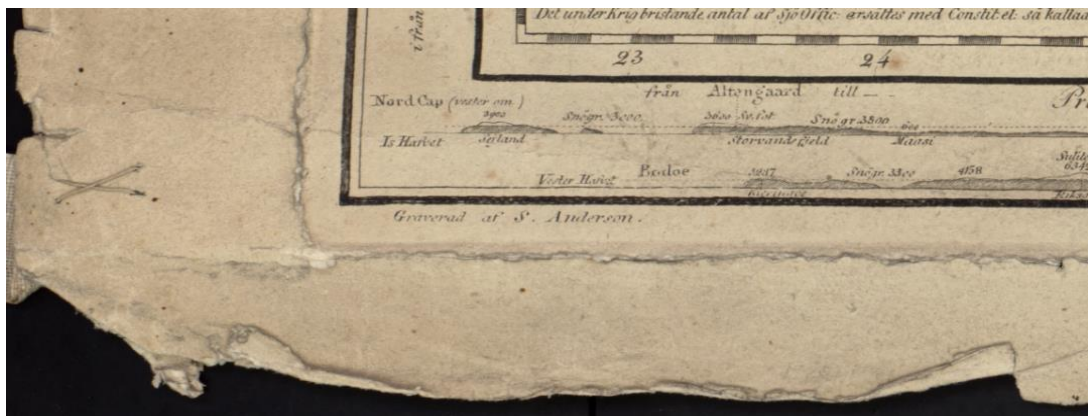 Det under Krig bristande antal af Sjö Offic: ersättes med Constit el: så kallad
23 24
i från
från Altengaard till
Nord Cap (vester om)
3900 Snögr. 3000 3600 So.fot Snö gr. 3500
Is Hafvet Seyland Storvandsfield Maasi
Vester Hafvet Bodoe 3237 Snögr. 3300 4158
Graverad af S. Anderson.